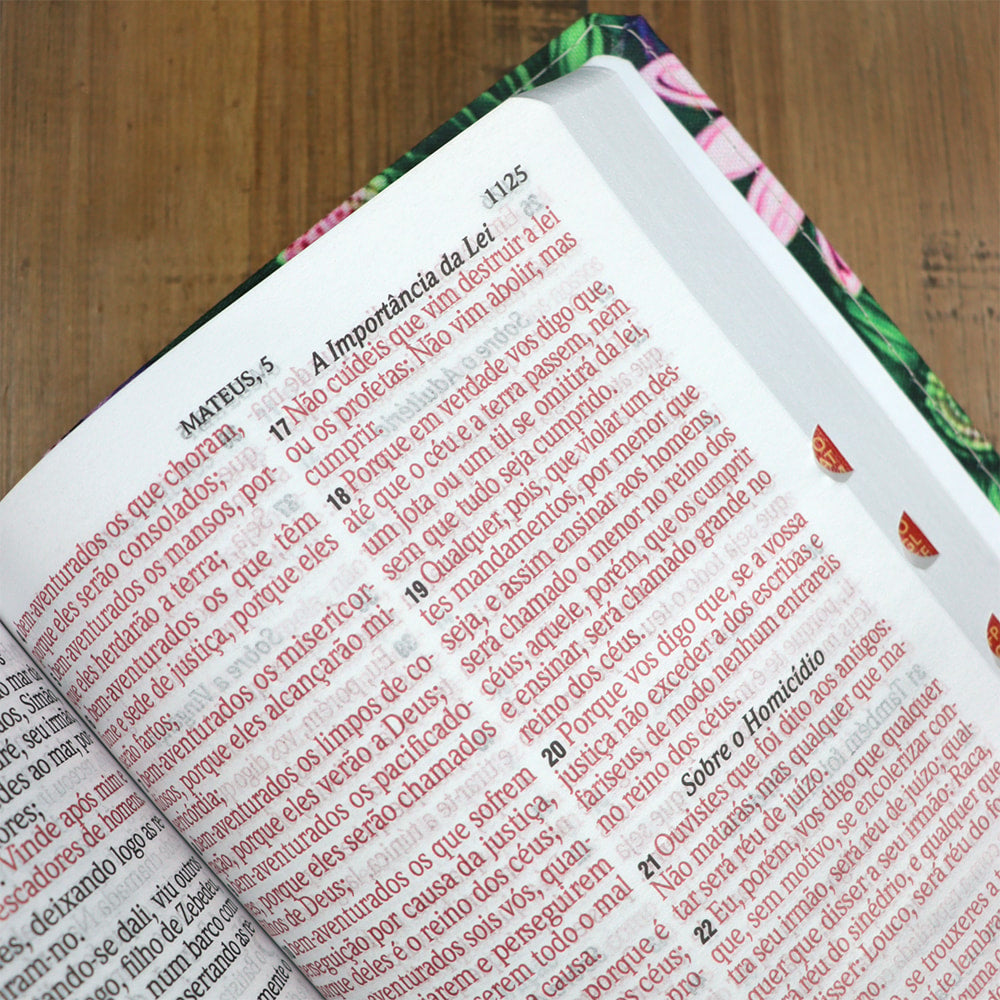 MATEUS, 5
1125
mar da
Simão
seu irmão
ao mar, por
Vinde após mim,
escadores de homens.
deixando logo as re-
ram-no.
ando-se dali, viu outros
filho de Zebedeu
num barco com
os que choram,
que eles serão consolados;
bem-aventurados os mansos, por-
que eles herdarão a terra;
bem-aventurados os que têm
e sede de justiça, porque eles
serão fartos;
bem-aventurados os misericor-
porque eles alcançarão mi-
bem-aventurados os limpos de co-
porque eles verão a Deus;
bem-aventurados os pacificado-
porque eles serão chamados
de Deus;
bem-aventurados os que sofrem
perseguição por causa da justiça,
porque deles é o reino dos céus;
bem-aventurados sois vós, quan-
e perseguirem
todo o mal
causa.
porque é
céus;
A Importância da Lei
17 Não cuideis que vim destruir a lei
ou os profetas: Não vim abolir, mas
cumprir.
18 Porque em verdade vos digo que,
até que o céu e a terra passem, nem
um jota ou um til se omitirá da lei,
sem que tudo seja cumprido.
19 Qualquer, pois, que violar um des-
tes mandamentos, por menor que
seja, e assim ensinar aos homens,
será chamado o menor no reino dos
céus; aquele, porém, que os cumprir
e ensinar, será chamado grande no
reino dos céus.
20 Porque vos digo que, se a vossa
justiça não exceder a dos escribas e
fariseus, de modo nenhum entrareis
no reino dos céus.
Sobre o Homicídio
21 Ouvistes que foi dito aos antigos:
Não matarás; mas qualquer que ma-
tar será réu de juízo.
22 Eu, porém, vos digo que qualquer
que, sem motivo, se encolerizar con-
tra seu irmão, será réu de juízo; qual-
quer que disser a seu irmão: Raca,
será réu do sinédrio; e qualquer que
disser: Louco, será réu do
se trouxeres a